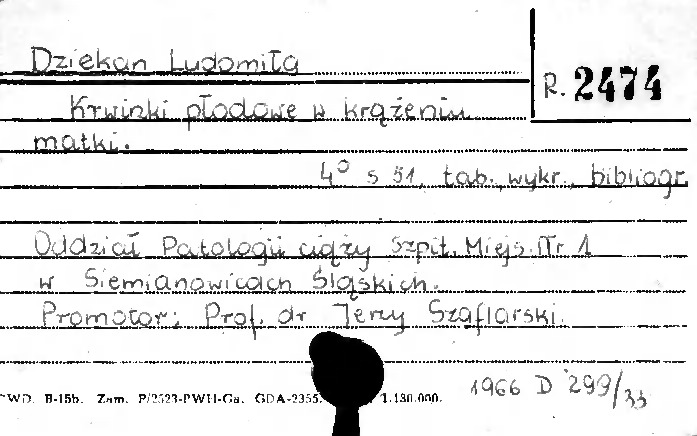 Dziekan Ludomiła
R. 2474
Krwinki płodowe w krążeniu
matki.
4° s 51, tab., wykr., bibliogr.
Oddział Patologii ciąży Szpit. Miejs. Nr 1
w Siemianowicach Śląskich.
Promotor: Prof. dr Jerzy Szaflarski.
1966 D 299/33
PWD. B-15b. Zam. P/2523-PWH-Ga. GDA-2355. 1.180.000.